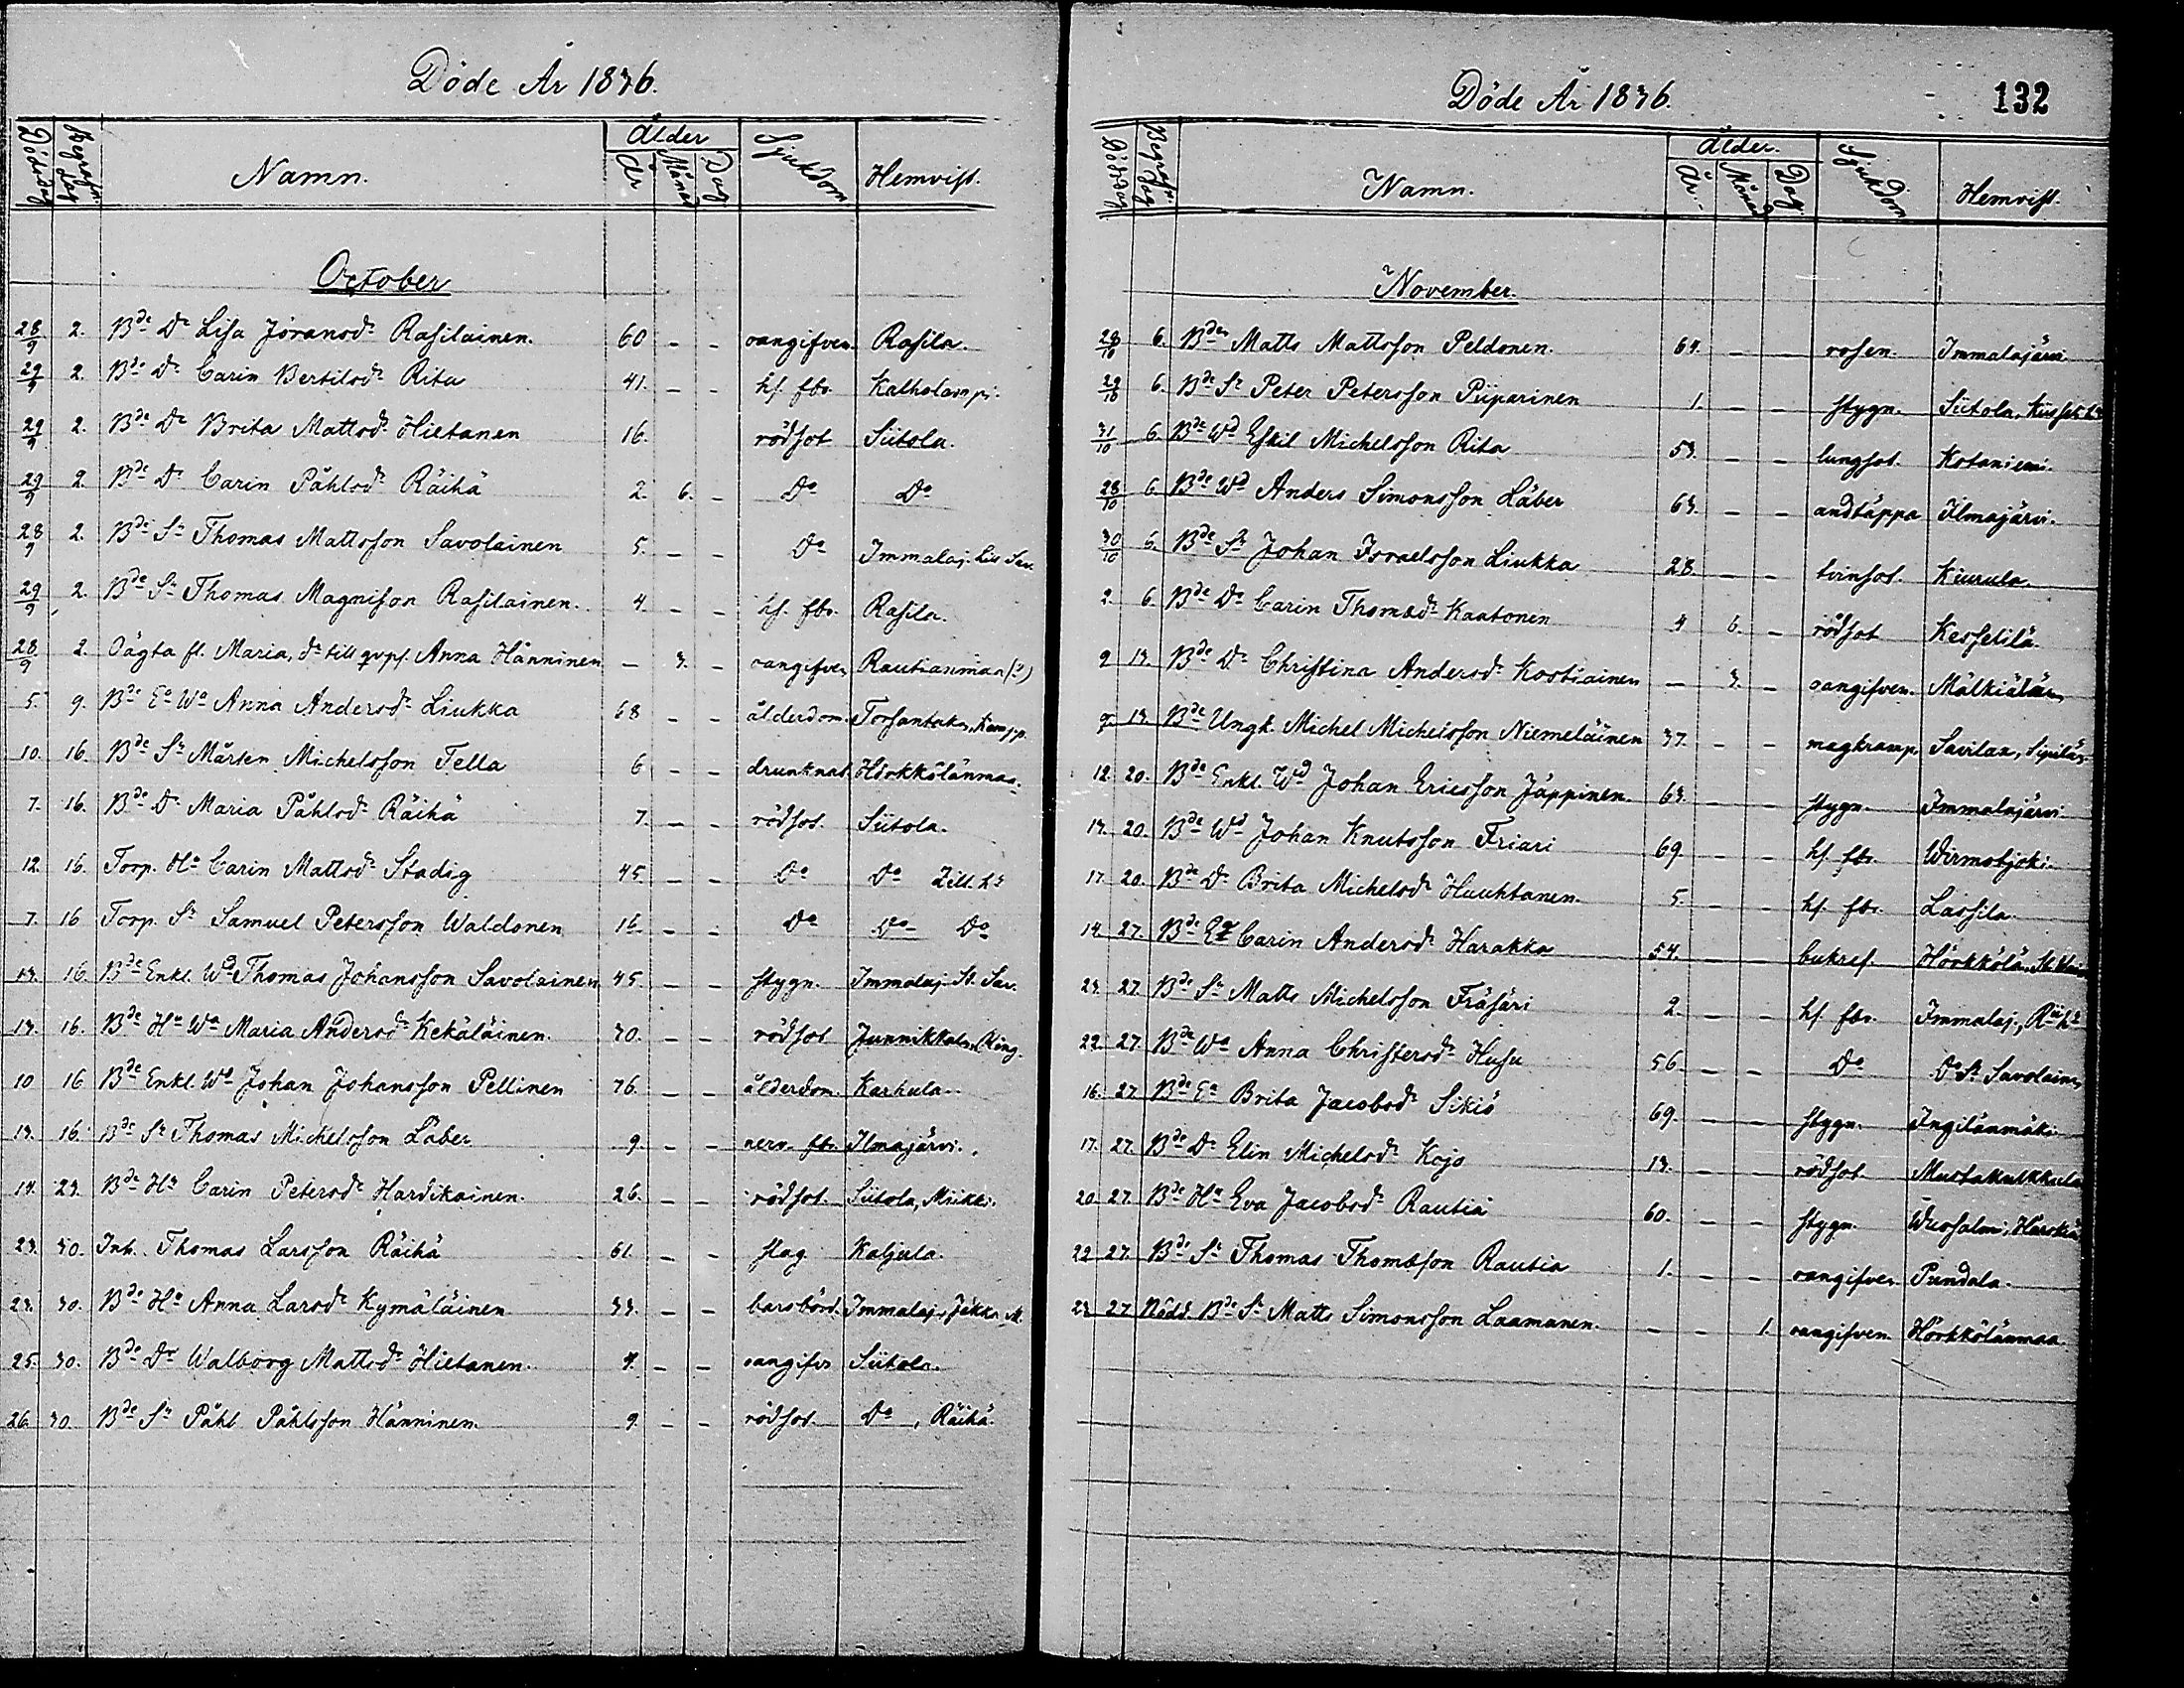 Döde År 1836.
Dödsdag Begrafn. dag Namn. Ålder År Månad Dag Sjukdom Hemvist.
October
28/9 2. Bde Dr Lisa Jöransdr Rasilainen. 60 - - oangifven Rasila.
29/9 2. Bde Dr Carin Bertilsdr Rita 41. - - hs. fbr. Katholampi.
29/9 2. Bde Dr Brita Mattsdr Hietanen 16. rödsot Siitola.
29/9 2. Bde Dr Carin Påhlsdr Räihä 2. 6. - Do Do
28/9 2. Bde Sn Thomas Mattsson Savolainen 5. - - Do Immalaj.
29/9 2. Bde Sn Thomas Magnisson Rasilainen. 4. - - hs. fbr. Rasila.
28/9 2. Oägta fl. Maria, dr till qvpf. Anna Hänninen - 3. - oangifven Rautianmaa (?)
5. 9. Bde Ea Wa Anna Andersdr Liukka 68 - - ålderdom. Torsantaka, Kemp.
10. 16. Bde Sn Mårten Michelsson Tella 6 - - drunknat Hörkkölänmaa.
7. 16. Bde Dr Maria Påhlsdr Räihä 7. - - rödsot. Siitola.
12. 16. Torp. Ha Carin Mattsdr Stadig 45. - - Do Do Zill. hs
7. 16 Torp. Sn Samuel Petersson Waldonen 16. - - Do Do Do
13. 16. Bde Enkl. Wd Thomas Johansson Savolainen 45. - - stygn. Immalaj. St. Sav.
13. 16. Bde Ha Wa Maria Andersdr Kekäläinen. 30. - - rödsot Junnikkala, Ring.
10 16 Bde Enkl. Wd Johan Johansson Pellinen 76. - - ålderdom. Karhula.
13. 16. Bde Sn Thomas Michelsson Läber 9. - - nerv. fbr. Ilmajärvi.
14. 23. Bde Ha Carin Petersdr Hardikainen. 26. - - rödsot. Siitola, Miikki.
23. 30. Inh. Thomas Larsson Räihä 61. - - slag Kaljula.
23. 30. Bde Ha Anna Larsdr Kymäläinen 33. - - barsbörd. Immalaj., Jäkkä M.
25. 30. Bde Dr Walborg Mattsdr Hietanen. 4. - - oangifv Siitola.
26. 30. Bde Sn Påhl Påhlsson Hänninen. 9. - - rödsot. Do, Räihä.
Döde År 1836. 132
Dödsdag Begrafn. dag Namn. Ålder. År. Månad Dag Sjukdom Hemvist.
November.
28/10 6. Bden Matts Mattsson Peldonen. 64. - - rosen. Immalajärvi
29/10 6. Bde Sn Peter Petersson Piiparinen 1. - - stygn. Siitola,
31/10 6. Bde Wd Eskil Michelsson Rita 53. - - lungsot. Kotaniemi.
28/10 6. Bde Wd Anders Simonsson Läber 63. - - andtäppa Ilmajärvi.
30/10 6. Bde Sn Johan Israelsson Liukka 28. - - tvinsot. Kiurula.
2. 6. Bde Dr Carin Thomædr Kaatonen 4 6. - rödsot Kessetilä.
9 13. Bde Dr Christina Andersdr Kostiainen - 3. - oangifven. Mälkiälän
9. 13. Bde Ungk. Michel Michelsson Niemeläinen 37. - - magkramp. Savilax, Sipilä.
12. 20. Bde Enkl. Wd Johan Ericsson Jäppinen. 63. - - stygn. Immalajärvi.
13. 20. Bde Wd Johan Knutsson Friari 69. - - hs. fbr. Wirmotjoki.
17. 20. Bde Dr Brita Michelsdr Huuhtanen. 5. - - hs. fbr. Lassila.
14. 27. Bde Ea Carin Andersdr Harakka 54. - - bukref. Hörkkölä,
23. 27. Bde Sn Matts Michelsson Fräsäri 2. - - hs. fbr. Immalaj.,
22. 27. Bde Wa Anna Christersdr Husu 56. - - Do Do St Savolain
16. 27. Bde Ea Brita Jacobsdr Sikiö 69. - - stygn. Ingilänmäki
17. 27. Bde Dr Elin Michelsdr Kojo 13. - - rödsot. Mustakulkkula
20. 27. Bde Ha Eva Jacobsdr Rautia 60. - - stygn. Wuosalmi, Härskiä
22 27. Bde Sn Thomas Thomæson Rautia 1. - - oangifven Pundala.
23 27. Nödd. Bde Sn Matts Simonsson Laamanen. - - 1. oangifven. Hörkkölänmaa.